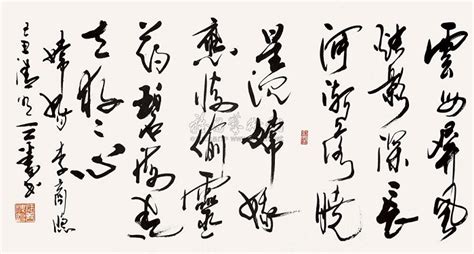 雲母屏風
燭影深長
河漸落曉
星沉嫦娥
應悔偷靈
藥碧海青
天夜々心
嫦娥 李商隱
己丑清明 書